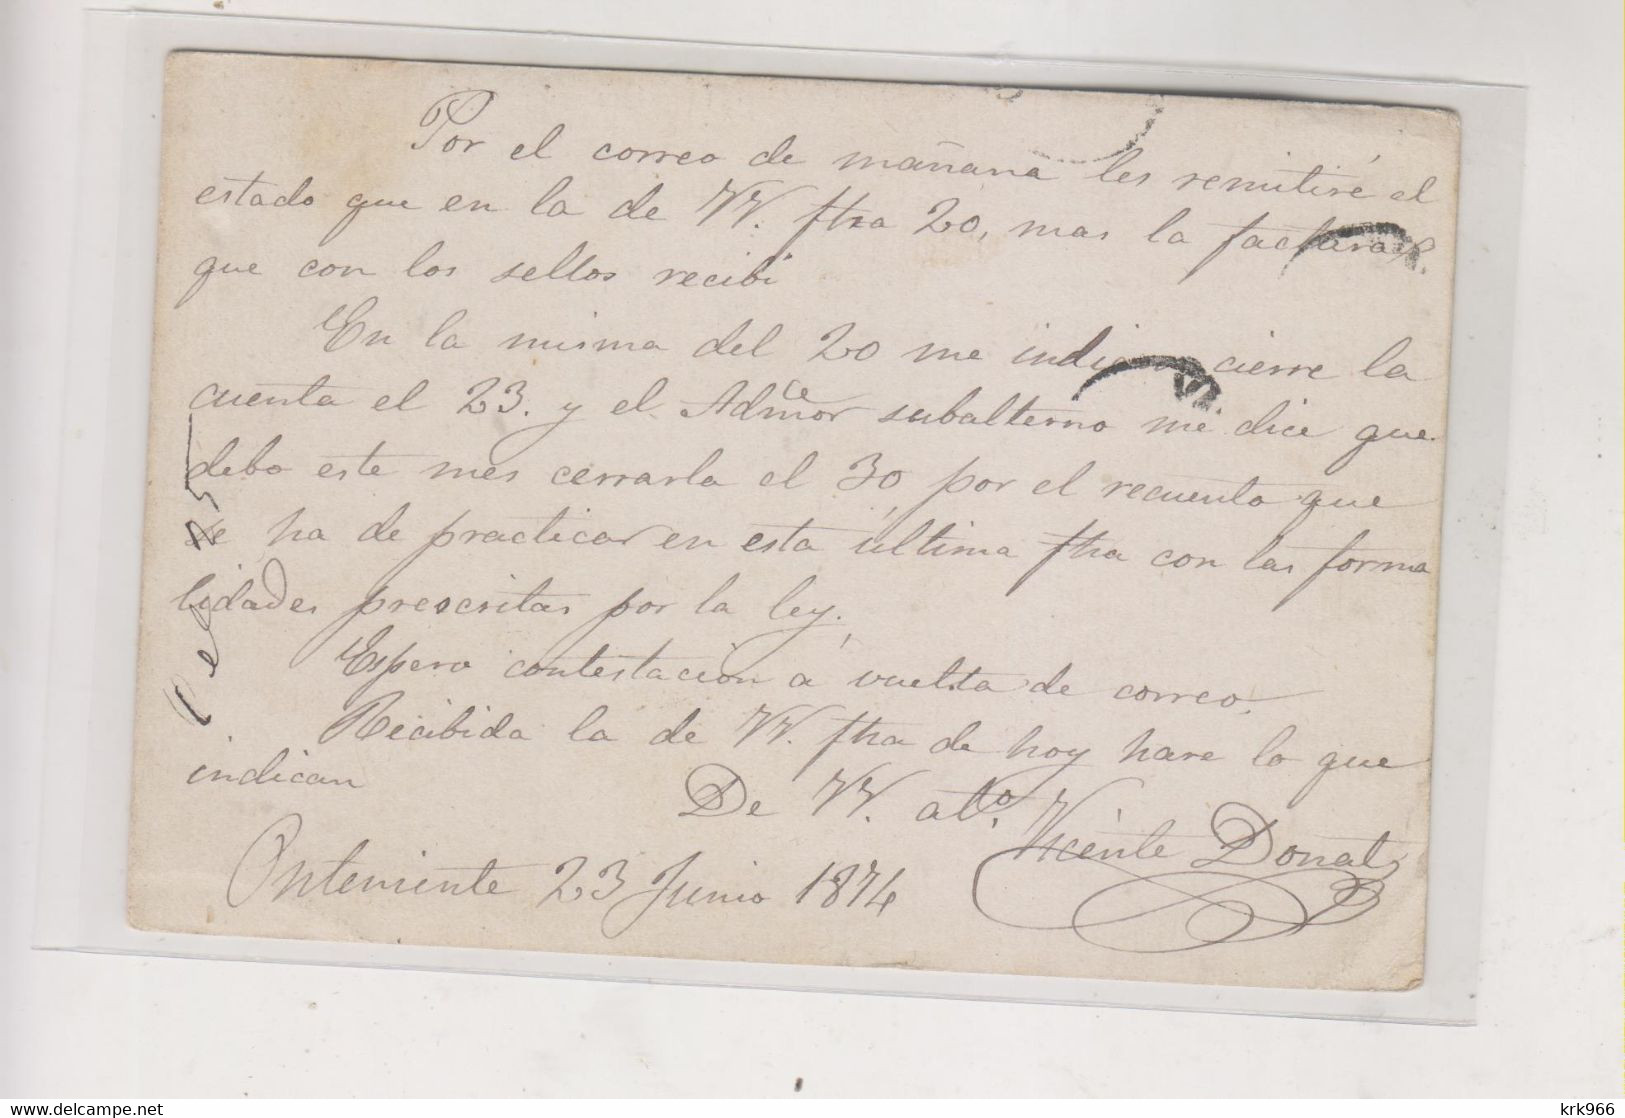 Por el correo de mañana les remitiré el
estado que en la de VV. fha 20, mas la factura
que con los sellos recibi
En la misma del 20 me indican cierre la
cuenta el 23. y el Admor subalterno me dice que
debo este mes cerrarla el 30 por el recuento que
se ha de practicar en esta última fha con las forma
lidades prescritas por la ley.
Espero contestacion á vuelta de correo.
Recibida la de VV. fha de hoy hare lo que
indican
De VV. atto.
Vicente Donat
Onteniente 23 Junio 1874
krk966